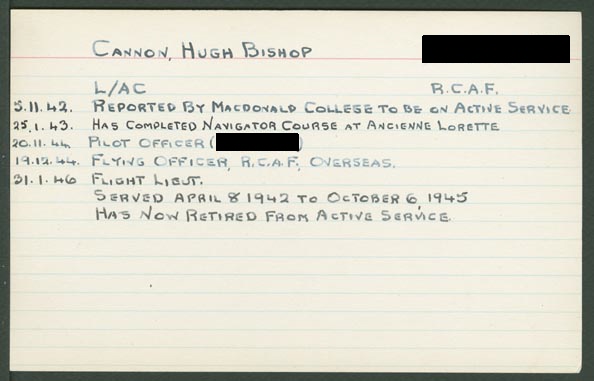 CANNON, HUGH BISHOP
L/AC R.C.A.F.
5.11.42. REPORTED BY MACDONALD COLLEGE TO BE ON ACTIVE SERVICE
25.1.43. HAS COMPLETED NAVIGATOR COURSE AT ANCIENNE LORETTE
20.11.44 PILOT OFFICER ( )
19.12.44. FLYING OFFICER, R.C.A.F. OVERSEAS.
31.1.46 FLIGHT LIEUT.
SERVED APRIL 8 1942 TO OCTOBER 6, 1945
HAS NOW RETIRED FROM ACTIVE SERVICE.